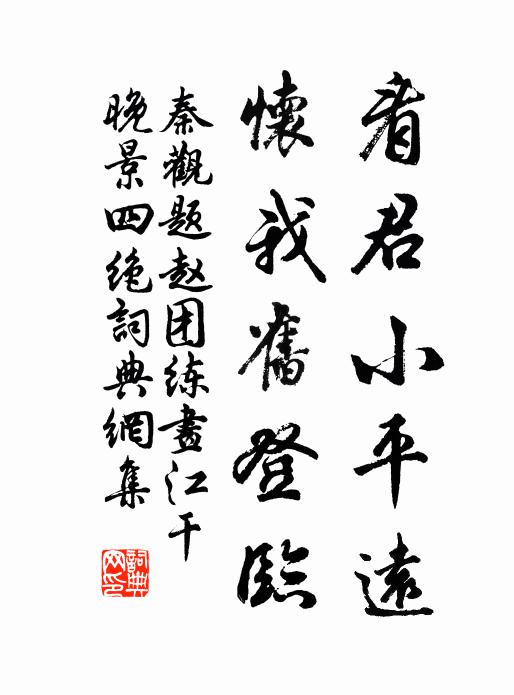 看君小平遠
懷我舊登臨
秦觀题赵团练畫江干
晚景四绝詞典網集
詞典网印